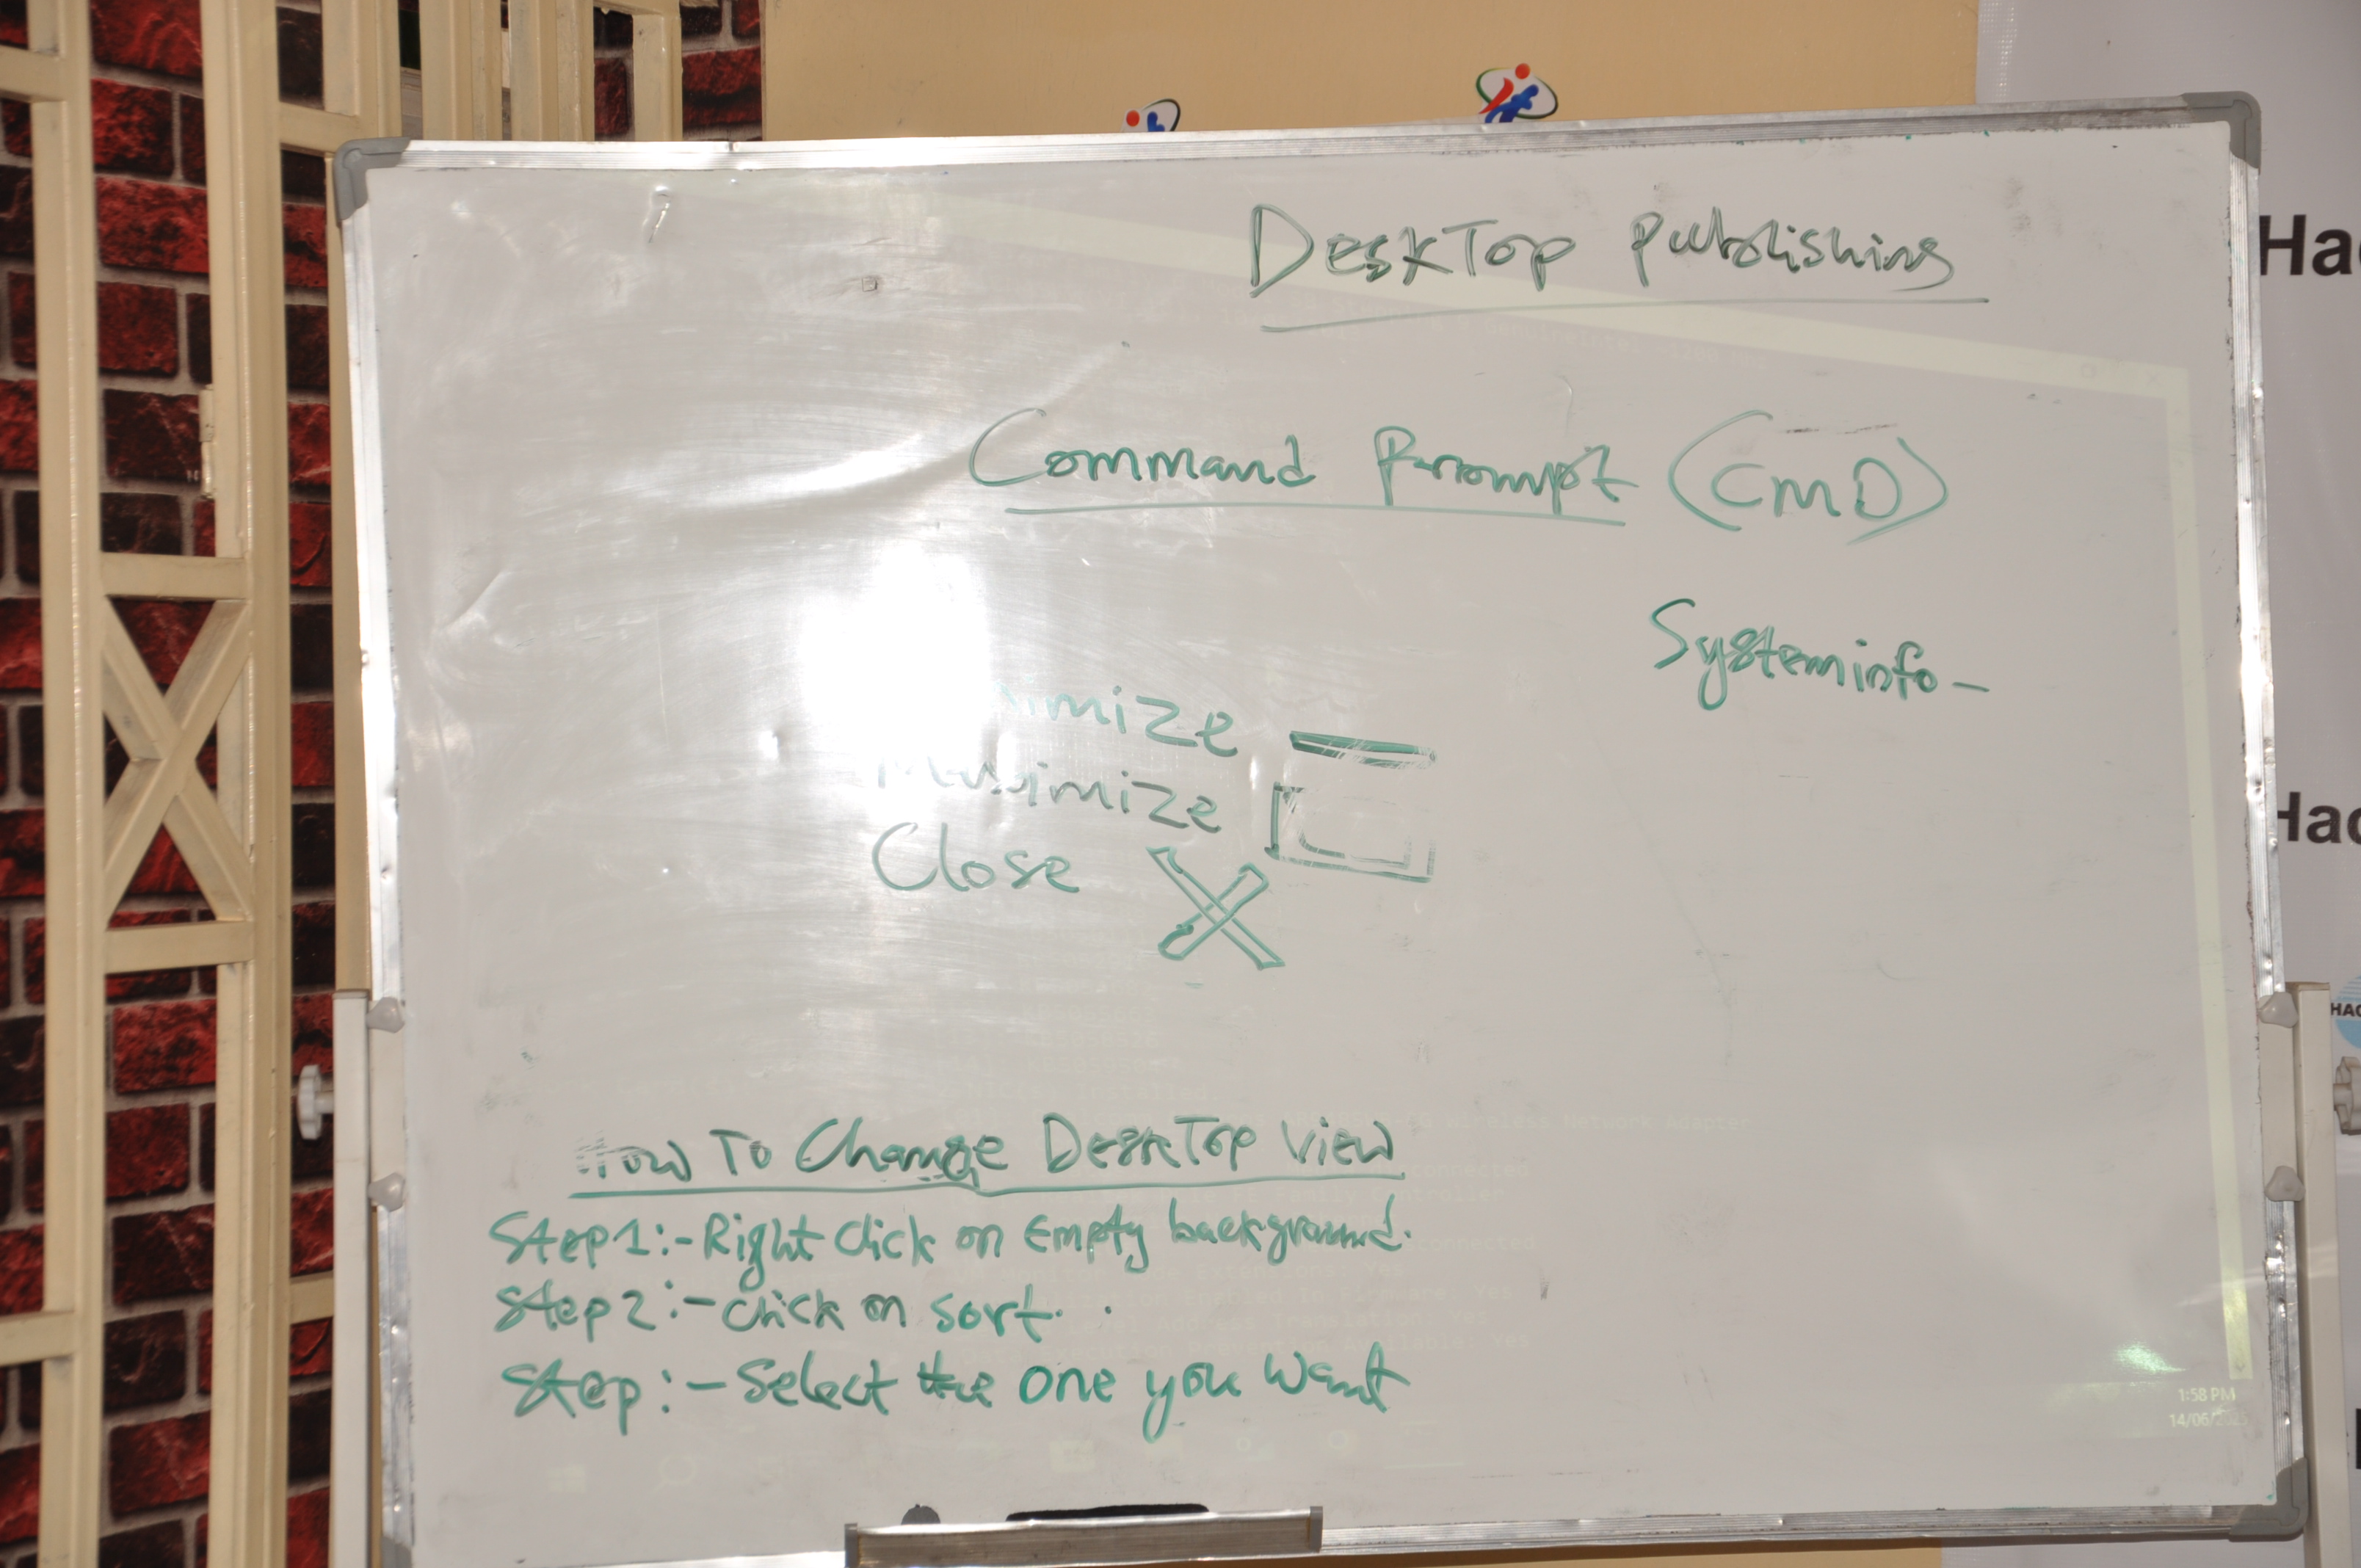 DeskTop publishing
Command Prompt (CMD)
Systeminfo -
imize
Maximize
Close
How To Change DeskTop View
Step1:- Right Click on Empty background.
Step2:- Click on sort.
Step:- Select the one you want
Wireless Network Adapter
connected
connected
installed.
1:58 PM
14/06/2023
Ha
Hac
HAC